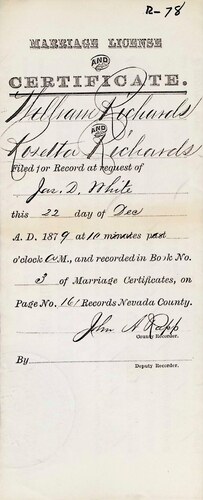 R-78
MARRIAGE LICENSE
AND
CERTIFICATE.
William Richards
AND
Rosetta Richards
Filed for Record at request of
Jas. D. White
this 22 day of Dec
A. D. 1879 at 10 minutes past
o'clock A M., and recorded in Book No.
3 of Marriage Certificates, on
Page No. 161 Records Nevada County.
John A Rapp
County Recorder.
By
Deputy Recorder.